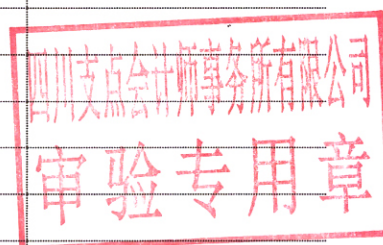 四川支点会计师事务所有限公司
审验专用章